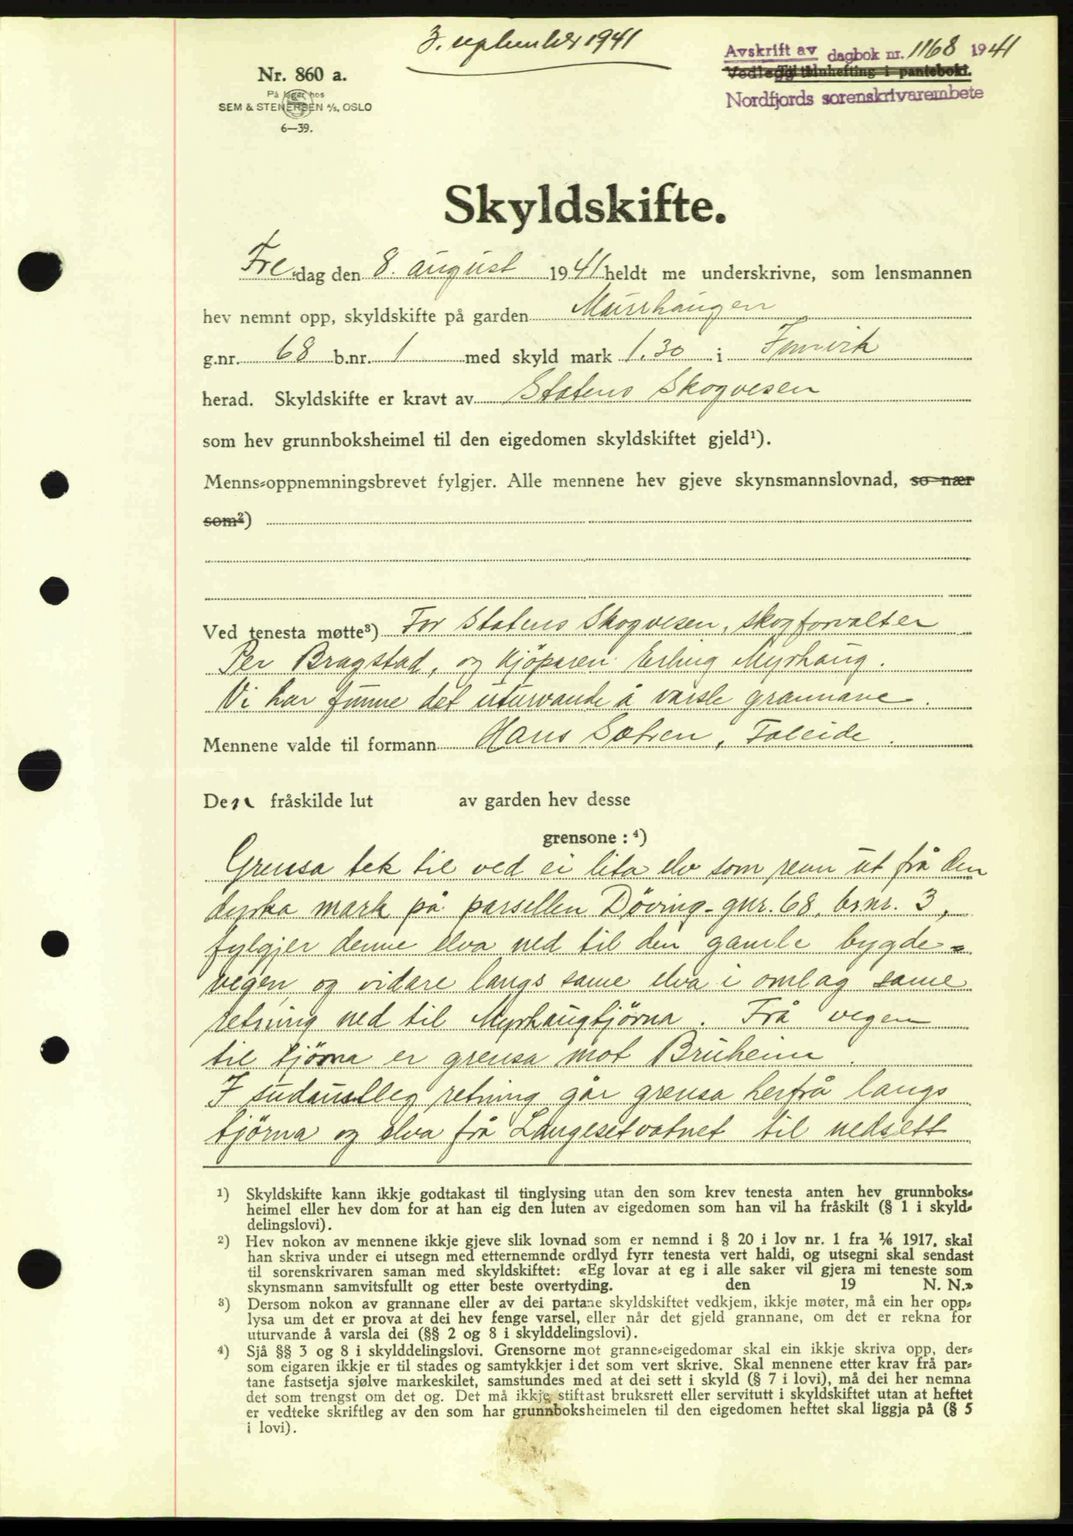 3. september 1941
Avskrift av dagbok nr. 1168 1941
Vedlegg til innhefting i pantebok.
Nordfjords sorenskrivarembete
Nr. 860 a.
På lager hos
SEM & STENERSEN A/S, OSLO
6—39.
Skyldskifte.
Fredag den 8. august 1941 heldt me underskrivne, som lensmannen
hev nemnt opp, skyldskifte på garden Murrhaugen
g.nr. 68 b.nr. 1 med skyld mark 1.30 i Innvik
herad. Skyldskifte er kravt av Statens Skogvesen
som hev grunnboksheimel til den eigedomen skyldskiftet gjeld¹).
Menns-oppnemningsbrevet fylgjer. Alle mennene hev gjeve skynsmannslovnad, so nær
som²)
Ved tenesta møtte³) For Statens Skogvesen, skogforvalter
Per Bragstad, og kjöparen Erling Myrhaug.
Vi har funne det uturvande å varsle grannane.
Mennene valde til formann Hans Sætren, Faleide.
Den fråskilde lut av garden hev desse
grensone : ⁴)
Grensa tek til ved ei lita elv som renn ut frå den
dyrka mark på parsellen Döving - gnr. 68, brnr. 3,
fylgjer denne elva ned til den gamle bygde-
vegen, og vidare langs same elva i omlag same
retning ned til Myrhaugtjörna. Frå vegen
til tjörna er grensa mot Bruheim.
I sudaustleg retning går grensa herfrå langs
tjörna og elva frå Langesetvatnet til nedsett
¹) Skyldskifte kann ikkje godtakast til tinglysing utan den som krev tenesta anten hev grunnboks-
heimel eller hev dom for at han eig den luten av eigedomen som han vil ha fråskilt (§ 1 i skyld-
delingslovi).
²) Hev nokon av mennene ikkje gjeve slik lovnad som er nemnd i § 20 i lov nr. 1 fra 1/6 1917, skal
han skriva under ei utsegn med etternemnde ordlyd fyrr tenesta vert haldi, og utsegni skal sendast
til sorenskrivaren saman med skyldskiftet: «Eg lovar at eg i alle saker vil gjera mi teneste som
skynsmann samvitsfullt og etter beste overtyding. den 19 N. N.»
³) Dersom nokon av grannane eller av dei partane skyldskiftet vedkjem, ikkje møter, må ein her opp-
lysa um det er prova at dei hev fenge varsel, eller når det gjeld grannane, om det er rekna for
uturvande å varsla dei (§§ 2 og 8 i skylddelingslovi).
⁴) Sjå §§ 3 og 8 i skylddelingslovi. Grensorne mot granne-eigedomar skal ein ikkje skriva opp, der-
som eigaren ikkje er til stades og samtykkjer i det som vert skrive. Skal mennene etter krav frå par-
tane fastsetja sjølve markeskilet, samstundes med at dei sett i skyld (§ 7 i lovi), må dei her nemna
det som trengst om det og. Det må ikkje stiftast bruksrett eller servitutt i skyldskiftet utan at heftet
er vedteke skriftleg av den som har grunnboksheimelen til den eigedomen heftet skal liggja på (§ 5
i lovi).